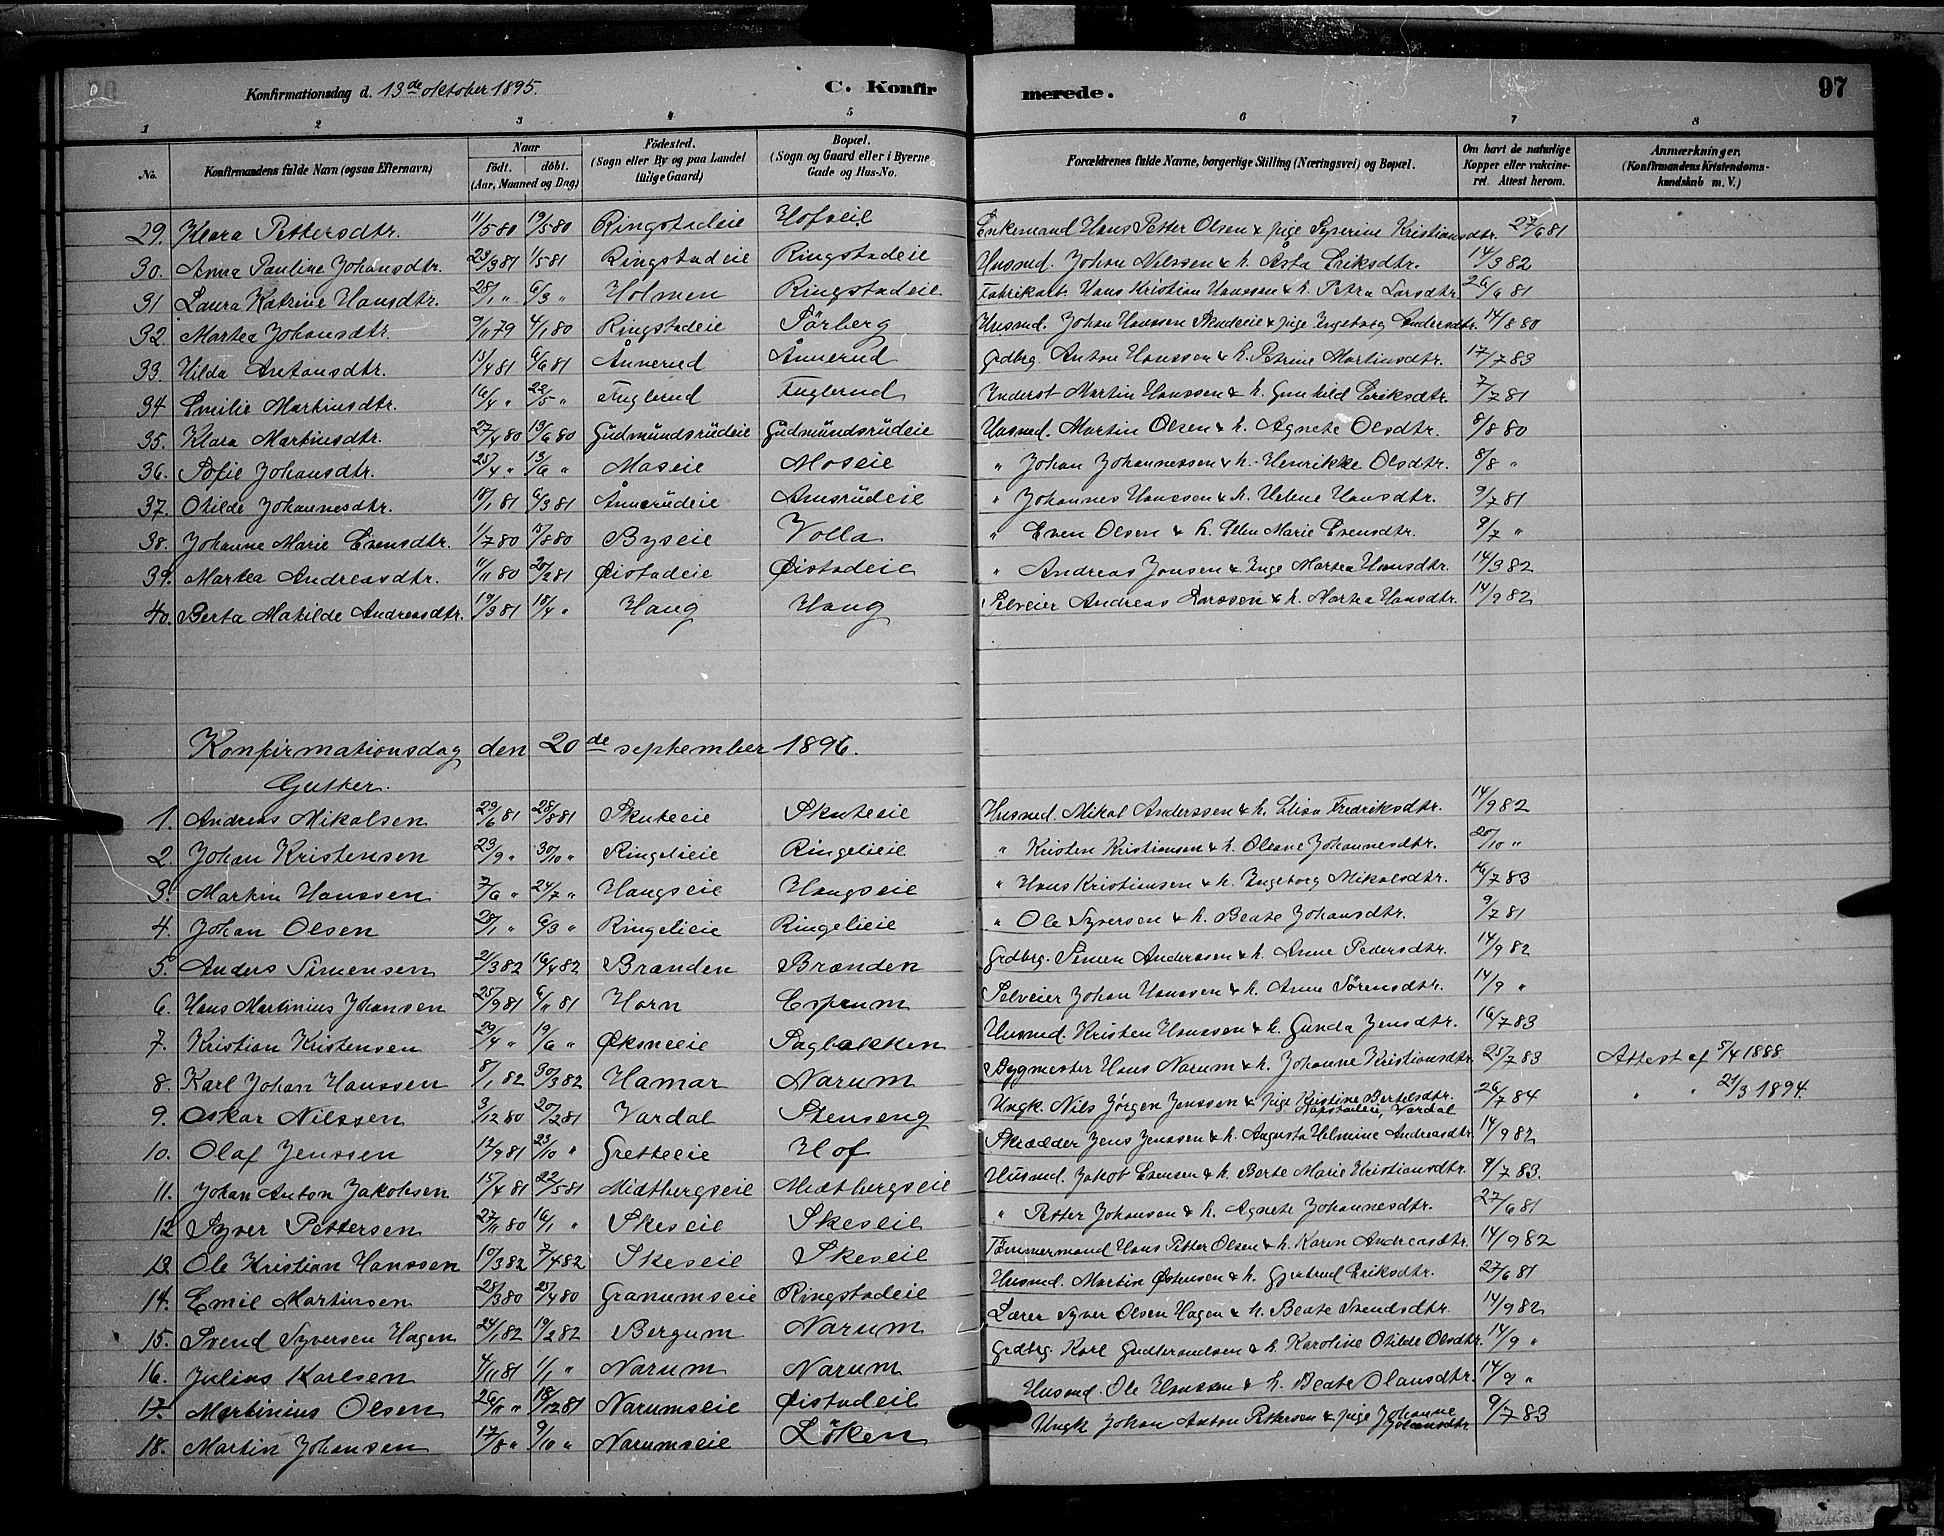 Konfirmationsdag d. 13de oktober 1895. C. Konfirmerede. 97
1 2 3 4 5 6 7 8
No. Konfirmandens fulde Navn (ogsaa Efternavn) Naar født. døbt. (Aar, Maaned og Dag) Fødested. (Sogn eller By og paa Landet tillige Gaard) Bopæl. (Sogn og Gaard eller i Byerne Gade og Hus-No. Forældrenes fulde Navne, borgerlige Stilling (Næringsvei) og Bopæl. Om havt de naturlige Kopper eller vakcineret. Attest herom. Anmærkninger, (Konfirmandens Kristendomskundskab m. V.)
29. Klara Pettersdtr. 11/5 80 19/5 80 Ringstadeie Hofseie Enkemand Hans Petter Olsen & pige Syverine Kristiansdtr. 27/6 81
30. Anna Pauline Johansdtr. 23/3 81 1/5 81 Ringstadeie Ringstadeie Husmd. Johan Nilssen & h. Åsta Eriksdtr. 14/3 82
31 Laura Katrine Hansdtr. 28/1 " 6/3 " Holmen Ringstadeie Fabrikarb. Hans Kristian Hanssen & h. Petra Larsdtr. 26/6 81
32. Martea Johansdtr. 9/11 79 4/1 80 Ringstadeie Sørberg Husmd. Johan Hanssen Skudeie & pige Ingeborg Andersdtr. 14/8 80
33. Hilda Antonsdtr. 15/4 81 6/6 81 Ånnerud Ånnerud Grdbrg. Anton Hanssen & h. Petrine Martinsdtr. 17/7 83
34 Emilie Martinsdtr. 16/4 " 22/5 " Fuglerud Fuglerud Inderst Martin Hanssen & h. Gunhild Eriksdtr. 7/7 81
35. Klara Martinsdtr. 27/4 80 13/6 80 Gudmundsrudeie Gudmundsrudeie Husmd. Martin Olsen & h. Agnete Olsdtr. 8/8 80
36. Sofie Johansdtr. 25/4 " 13/6 " Moseie Moseie " Johan Johannessen & h. Henrikke Olsdtr. 8/8 "
37. Otilde Johannesdtr. 18/1 81 6/3 81 Ånnerudeie Amsrudeie " Johannes Hanssen & h. Helene Hansdtr. 9/7 81
38. Johanne Marie Evensdtr. 1/7 80 15/8 80 Byseie Volla " Even Olsen & h. Ellen Marie Evensdtr. 9/7 "
39. Martea Andreasdtr. 11/11 80 20/2 81 Øistadeie Øistadeie " Andreas Jonsen & Inge Martea Hansdtr. 14/3 82
40. Berta Matilde Andreasdtr. 19/3 81 18/4 " Haug Haug Selveier Andreas Larssen & h. Martea Hansdtr. 14/9 82
Konfirmationsdag den 20de september 1896.
Gutter.
1. Andreas Mikalsen 29/6 81 28/8 81 Skuteeie Skuteeie Husmd. Mikal Anderssen & h. Elisa Fredriksdtr. 14/9 82
2. Johan Kristensen 23/9 " 30/10 " Ringelieie Ringelieie " Kristen Kristiansen & h. Oleane Johannesdtr. 20/10 "
3. Martin Hanssen 7/6 " 24/7 " Haugseie Haugseie " Hans Kristiansen & h. Ingeborg Mikalsdtr. 16/7 83
4. Johan Olsen 28/1 " 6/3 " Ringelieie Ringelieie " Ole Syversen & h. Beate Johansdtr. 9/7 81
5. Anders Simensen 21/3 82 16/4 82 Brænden Brænden Grdbrg. Simen Anderssen & h. Anne Pedersdtr. 14/9 82
6. Hans Martinius Johansen 25/9 81 6/11 81 Horn Esperum Selveier Johan Hanssen & h. Anne Sørensdtr. 14/9 "
7. Kristian Kristensen 29/4 " 19/6 " Øksneeie Sagbakken Husmd. Kristen Hanssen & h. Gunda Jensdtr. 16/7 83
8. Karl Johan Hanssen 8/1 82 30/3 82 Hamar Narum Bygmester Hans Narum & h. Johanne Kristiansdtr. 25/7 83 Attest af 5/4 1888
9. Oskar Nilssen 3/12 80 20/2 81 Vardal Stenseng Ungk. Nils Jørgen Jenssen & pige Kristine Bertelsdtr. Vardal 26/7 84 " " 21/3 1894.
10. Olaf Jenssen 17/9 81 23/10 " Gretteeie Hof Skrædder Jens Jenssen & h. Augusta Helmine Andreasdtr. 14/9 82
11. Johan Anton Jakobsen 15/4 81 22/5 81 Midtbergseie Midtbergseie Husmd. Jakob Evensen & h. Berte Marie Kristiansdtr. 9/7 83.
12 Syver Pettersen 27/11 80 16/1 " Skeseie Skeseie " Petter Johansen & h. Agnete Johannesdtr. 27/6 81
13. Ole Kristian Hanssen 10/3 82 7/4 82 Skeseie Skeseie Tømmermand Hans Petter Olsen & h. Karen Andreasdtr. 14/9 82
14. Emil Martinsen 28/3 80 25/4 80 Granumseie Ringstadeie Husmd. Martin Østensen & h. Gjertrud Eriksdtr. 27/6 81
15. Svend Syversen Hagen 24/1 82 19/2 82 Bergum Narum Lærer Syver Olsen Hagen & h. Beate Svendsdtr. 14/9 82
16. Julius Karlsen 4/11 81 1/1 " Narum Narum Grdbrg. Karl Gudbrandsen & h. Karoline Otilde Olsdtr. 14/9 "
17. Martinius Olsen 26/11 " 18/12 81 Narumseie Øistadeie Husmd. Ole Hanssen & h. Beate Olausdtr. 14/9 "
18. Martin Johansen 17/8 " 9/10 " Narumseie Løken Ungk Johan Anton Pettersen & pige Johanne Johansdtr. 9/7 83